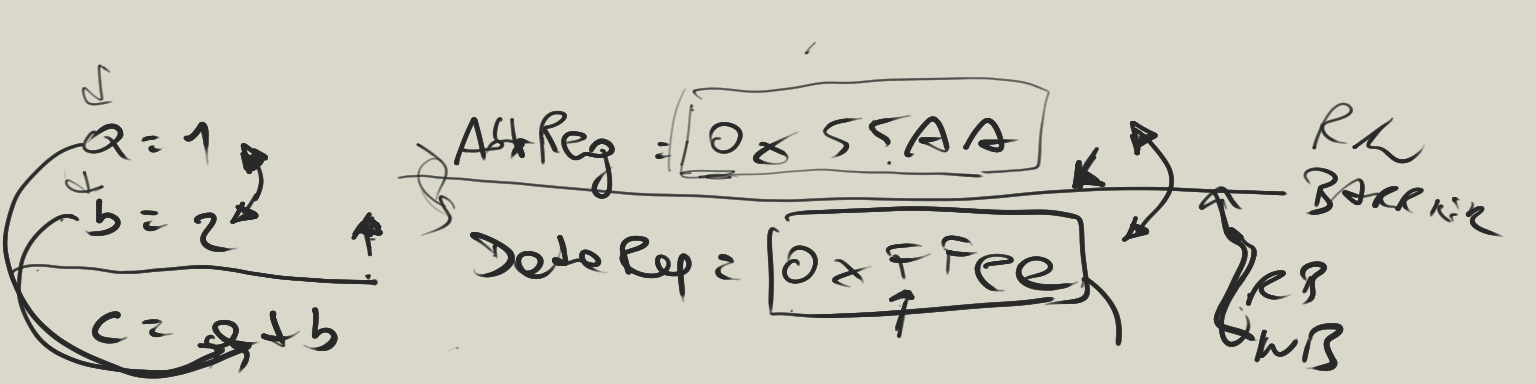 a = 1
b = 2
c = a + b
AttReg = 0x55AA
DataReg = 0xFFee
BARRier
RB
WB